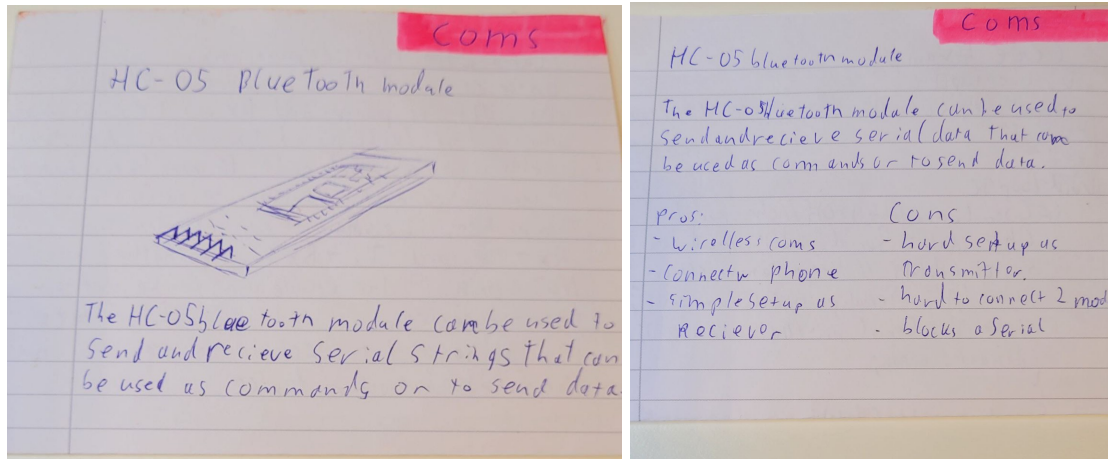 Coms
HC-05 Bluetooth module
The HC-05bluetooth module canbe used to
send and recieve serial strings that can
be used as commands or to send data.
Coms
HC-05 bluetooth module
The HC-05bluetooth module can be used to
send and recieve serial data that can
be used as commands or to send data.
Pros:
- wirelless coms
- connect w phone
- simple setup as
Reciever
Cons
- hard setup as
transmitter.
- hard to connect 2 mod
- blocks a serial